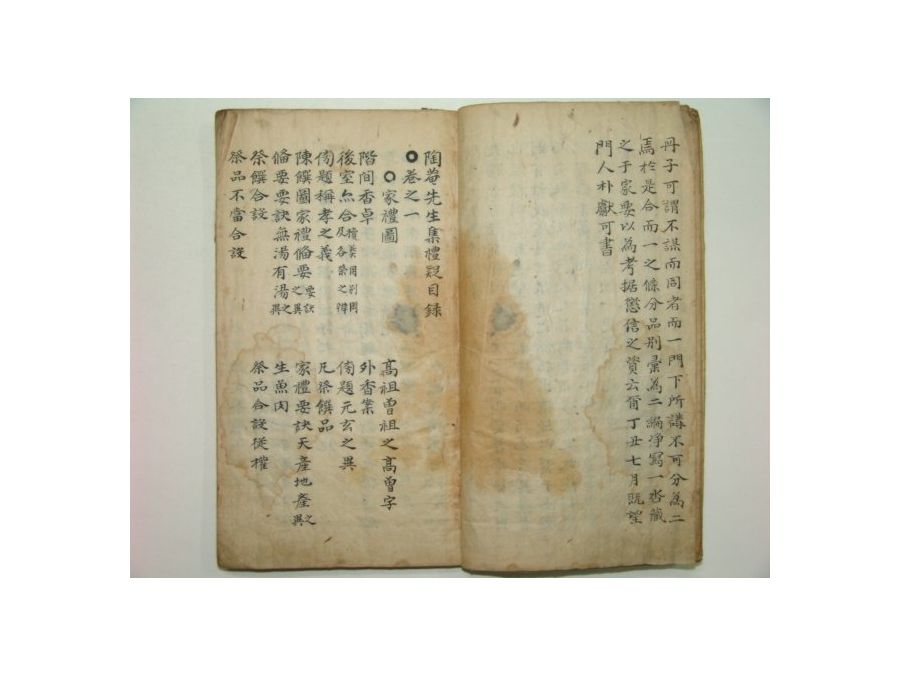 丹子可謂不謀而同者而一門下所講不可分為二
焉於是合而一之條分品別彙為二編淨寫一呇藏
之于家要以為考据懲信之資云甭丁丑七月既望
門人朴獻可書
陶菴先生集禮疑目録
卷之一
家禮圖 高祖曾祖之高曾字
階間香卓 外香案
後室只合櫝莫用別圖及各祭之禕
傍題稱孝之義 傍題元玄之異
陳饌圖家禮俻要要訣之異 凡祭饌品
俻要要訣無湯有湯之異 家禮要訣天産地產之異
祭饌合設 生魚肉
祭品不當合設 祭品合設従權